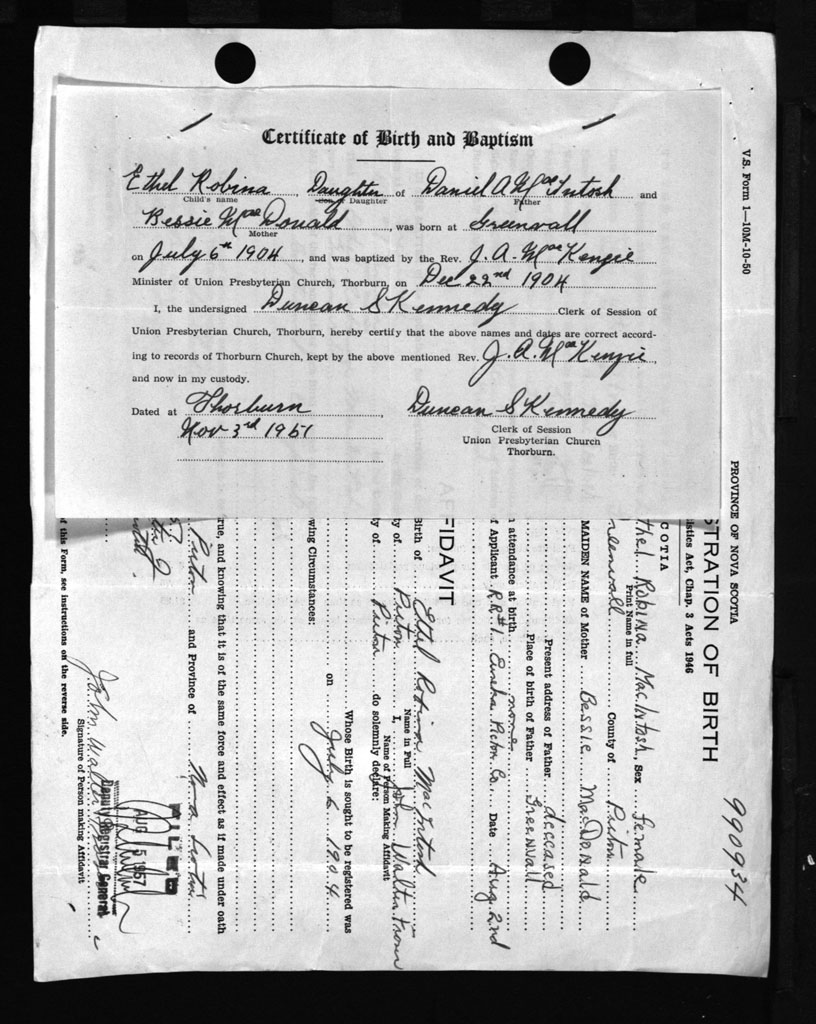 Certificate of Birth and Baptism
Ethel Robina, Daughter of Daniel A Mac Intosh and
Child's name Son or Daughter Father
Bessie Mac Donald, was born at Greenwall
Mother
on July 6th 1904, and was baptized by the Rev. J. A. Mac Kenzie
Minister of Union Presbyterian Church, Thorburn, on Dec 22nd 1904
I, the undersigned Duncan S Kennedy Clerk of Session of
Union Presbyterian Church, Thorburn, hereby certify that the above names and dates are correct accord-
ing to records of Thorburn Church, kept by the above mentioned Rev. J. A. Mac Kenzie,
and now in my custody.
Dated at Thorburn Duncan S Kennedy
Nov 3rd 1951 Clerk of Session
Union Presbyterian Church
Thorburn.
V.S. Form 1—10M-10-50
990934
PROVINCE OF NOVA SCOTIA
STRATION OF BIRTH
istics Act, Chap. 3 Acts 1946
COTIA
thel Robina MacIntosh Sex female
Print Name in full
reenwall County of Pictou
MAIDEN NAME of Mother Bessie MacDonald
Present address of Father deceased
Place of birth of Father Greenwall
n attendance at birth none
f Applicant R.R.#1 Eureka Pictou Co. Date Aug 2nd
FIDAVIT
Birth of Ethel Robina MacIntosh
Name in Full
ty of Pictou I, John Walter
Name of Person Making Affidavit
ty of Pictou do solemnly declare:
Whose Birth is sought to be registered was
on July 6 1904
wing Circumstances:
rue, and knowing that it is of the same force and effect as if made under oath
Pictou and Province of Nova Scotia
FILED
AUG 5 1957
Deputy Registrar General
John Walter
Signature of Person making Affidavit
f this Form, see instructions on the reverse side.